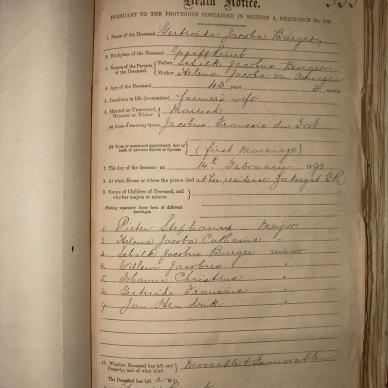 Death Notice.
PURSUANT TO THE PROVISIONS CONTAINED IN SECTION 9, ORDINANCE No. 104.
1. Name of the Deceased Gertruida Jacoba Burger
2. Birthplace of the Deceased Graaff Reinet
3. Names of the Parents of the Deceased. Father Schalk Jacobus Burger
Mother Helena Jacoba van Aswegen
4. Age of the Deceased 43 years months
5. Condition in life (occupation) farmers wife
6. Married or Unmarried, Widower or Widow Married
(a) Name of Surviving Spouse Jacobus Francois du Toit
(b) Name or names and approximate date of death of previous Spouse or Spouses (first Marriage)
7. The day of the decease: on 14th February
8. At what House or where the person died at her residence
9. Names of Children of Deceased, and whether majors or minors
(stating separately those born of different marriages.
1. Pieter Stephanus Major
2. Helena Jacoba Catharina "
3. Schalk Jacobus Burger minor
4. Willem Jacobus "
5. Johanna Christina "
6. Gertruida Francina "
7. Jan Hendrik "
10. Whether Deceased has left any Property, and of what kind Moveable & Immovable
The Deceased has left a